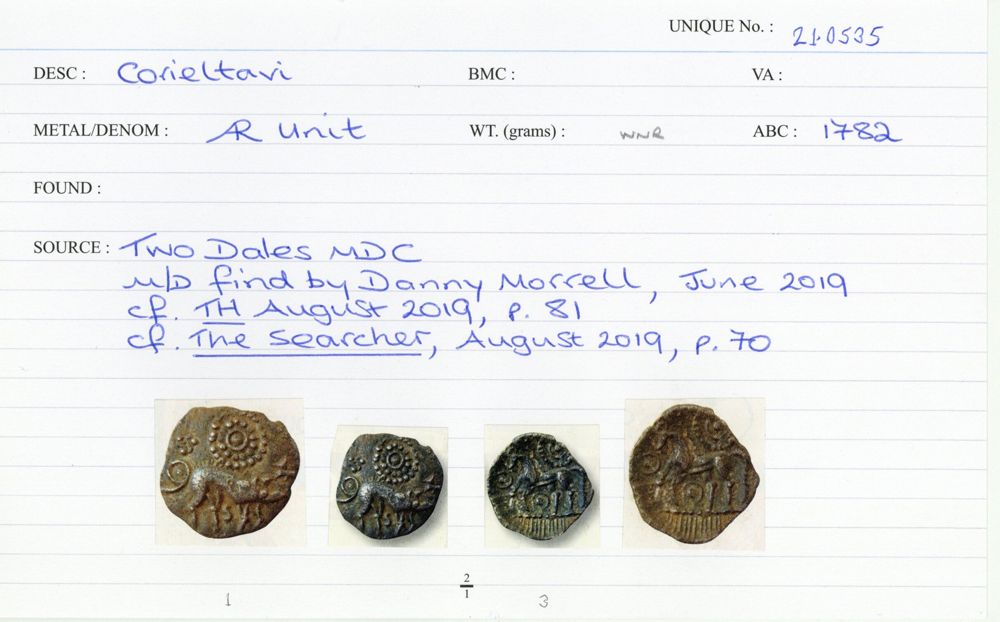 UNIQUE No. : 21.0535
DESC : Corieltavi BMC : VA :
METAL/DENOM : AR Unit WT. (grams) : WNR ABC : 1782
FOUND :
SOURCE : Two Dales MDC
m/d find by Danny Morrell, June 2019
cf. TH August 2019, p. 81
cf. The Searcher, August 2019, p. 70
2/1
1 3